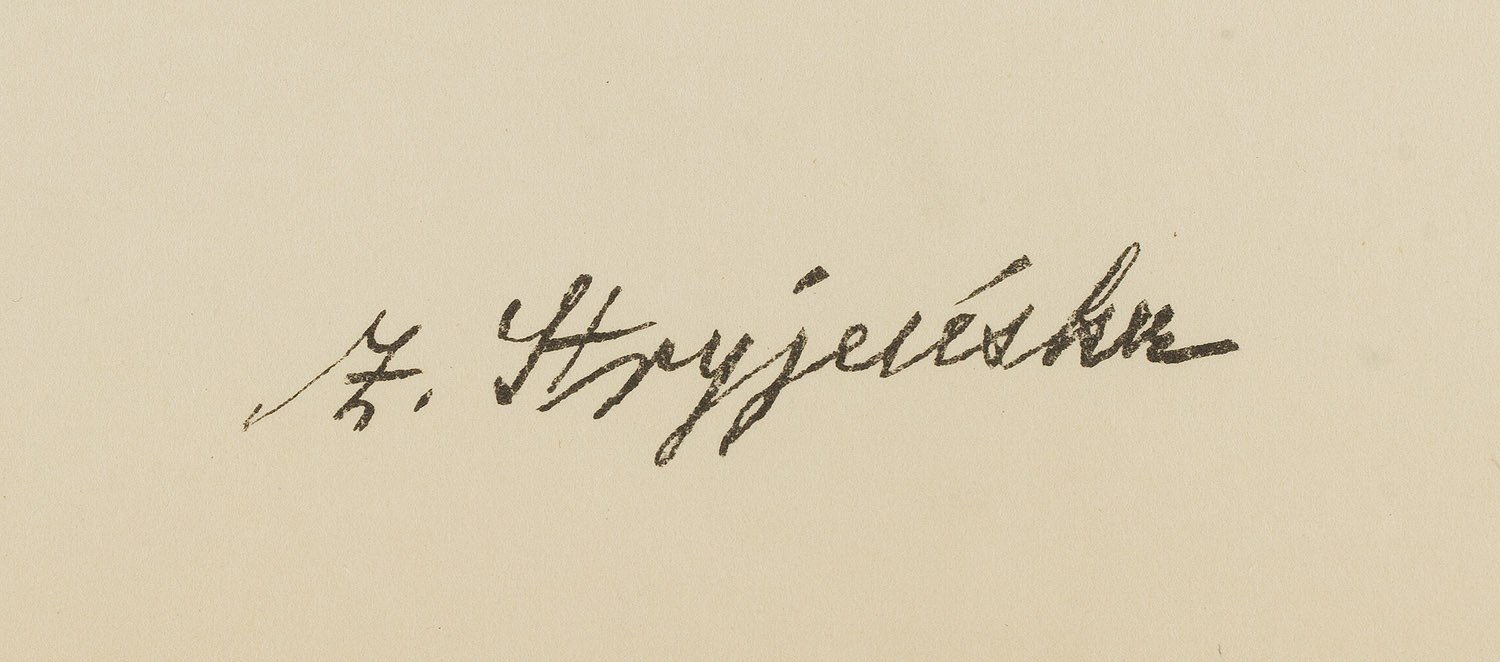 Z. Stryjeńska